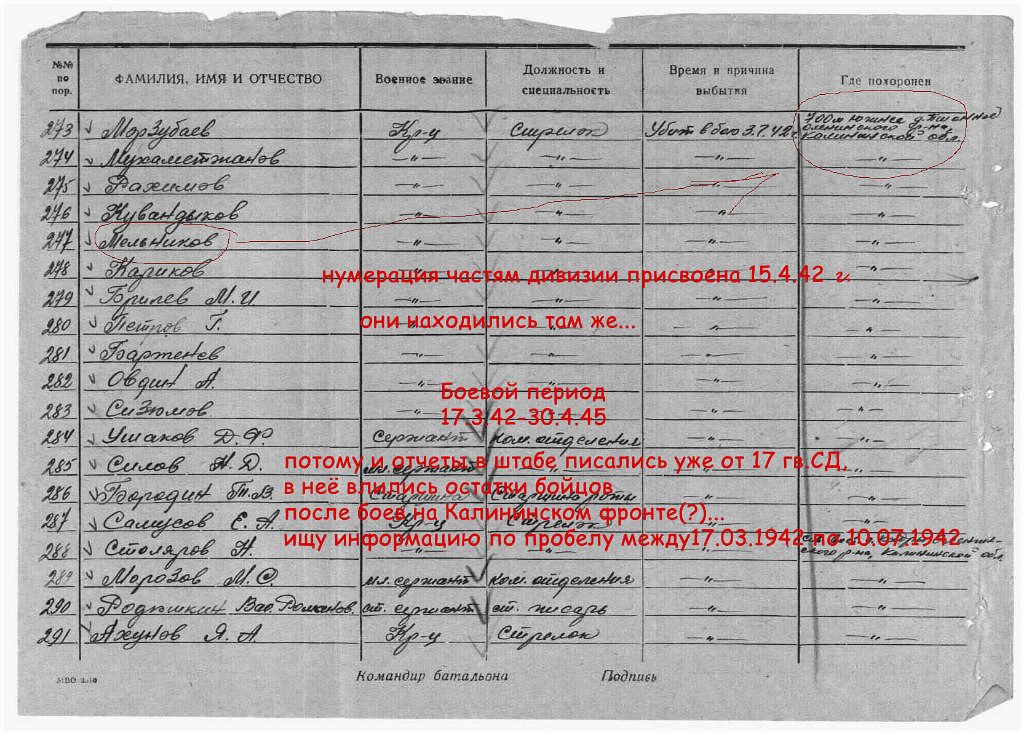 №№ по пор. ФАМИЛИЯ, ИМЯ И ОТЧЕСТВО Военное звание Должность и специальность Время и причина выбытия Где похоронен
273 Морзубаев Кр-ц Стрелок Убит в бою 3.7.42г. 700м южнее д. Оленинского р-на Калининской обл.
274 Мухаметжанов —"— —"— —"— —"—
275 Рахимов —"— —"— —"— —"—
276 Кувандыков —"— —"— —"— —"—
277 Мельников —"— —"— —"— —"—
278 Кариков —"— —"— —"— —"—
нумерация частям дивизии присвоена 15.4.42 г.
279 М. И —"— —"— —"— —"—
280 Петров Г. —"— —"— —"— —"—
они находились там же...
281 Барженев —"— —"— —"— —"—
282 Овдин А. —"— —"— —"— —"—
Боевой период
17.3.42-30.4.45
283 Сизюмов —"— —"— —"— —"—
284 Ушаков Д. Ф. Сержант ком. отделения —"— —"—
285 Силов Н. Д. мл. сержант —"— —"— —"—
потому и отчеты в штабе писались уже от 17 гв.СД,
286 Бородин Старшина Старшина роты —"— —"—
в неё влились остатки бойцов
287 Самусов Е. А. Кр-ц Стрелок —"— —"—
после боев на Калининском фронте(?)...
ищу информацию по пробелу между17.03.1942-по 10.07.1942
288 Столяров Н. —"— —"— —"— р-на, Калининской обл.
289 Морозов М. С. мл. сержант ком. отделения —"— —"—
290 Родишкин Вас. Романов. ст. сержант ст. писарь —"— —"—
291 Ахунов Я. А. Кр-ц Стрелок —"— —"—
МВО Командир батальона Подпись